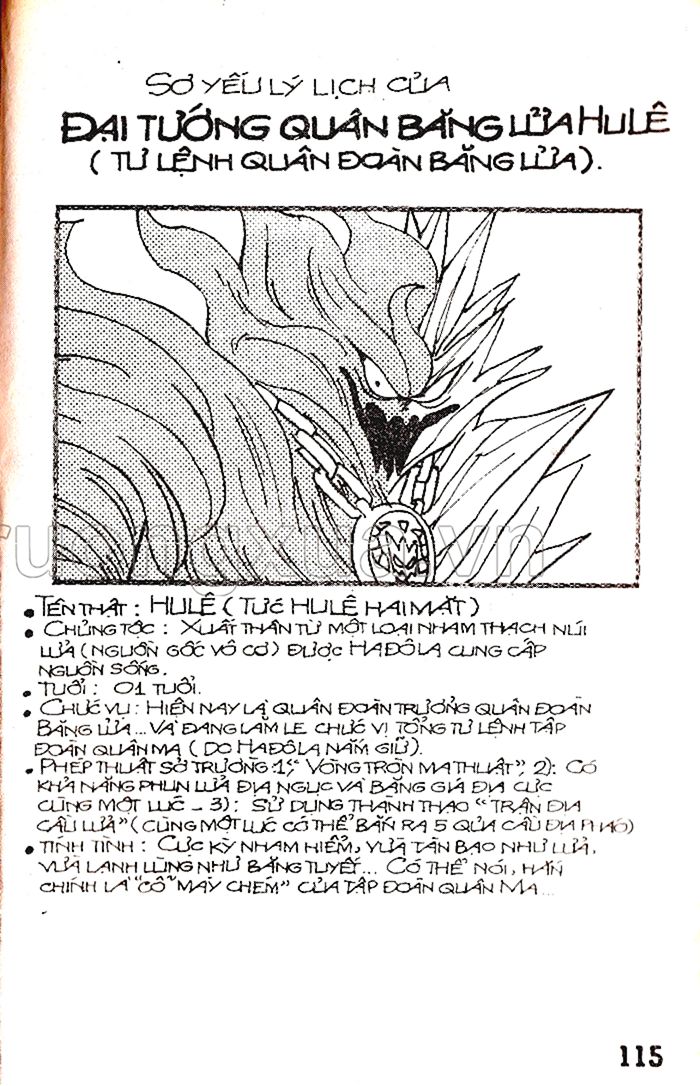 SƠ YẾU LÝ LỊCH CỦA
ĐẠI TƯỚNG QUÂN BĂNG LỬA HULÊ
( TƯ LỆNH QUÂN ĐOÀN BĂNG LỬA ).
• TÊN THẬT : HULÊ ( TỨC HULÊ HAI MẶT )
• CHỦNG TỘC : XUẤT THÂN TỪ MỘT LOẠI NHAM THẠCH NÚI
LỬA ( NGUỒN GỐC VÔ CƠ ) ĐƯỢC HAĐÔLA CUNG CẤP
NGUỒN SỐNG.
• TUỔI : 01 TUỔI.
• CHỨC VỤ : HIỆN NAY LÀ QUÂN ĐOÀN TRƯỞNG QUÂN ĐOÀN
BĂNG LỬA ... VÀ ĐANG LĂM LE CHỨC VỊ TỔNG TƯ LỆNH TẬP
ĐOÀN QUÂN MA ( DO HAĐÔLA NẮM GIỮ ).
• PHÉP THUẬT SỞ TRƯỜNG : 1) "VÒNG TRÒN MA THUẬT", 2) : CÓ
KHẢ NĂNG PHUN LỬA ĐỊA NGỤC VÀ BĂNG GIÁ ĐỊA CỰC
CÙNG MỘT LÚC - 3) : SỬ DỤNG THÀNH THẠO "TRẬN ĐỊA
CẦU LỬA" ( CÙNG MỘT LÚC CÓ THỂ BẮN RA 5 QỦA CẦU ĐẠI PHÁO )
• TÍNH TÌNH : CỰC KỲ NHAM HIỂM, VỪA TÀN BẠO NHƯ LỬA,
VỪA LẠNH LÙNG NHƯ BĂNG TUYẾT ... CÓ THỂ NÓI, HẮN
CHÍNH LÀ "CỖ MÁY CHÉM" CỦA TẬP ĐOÀN QUÂN MA ...
115